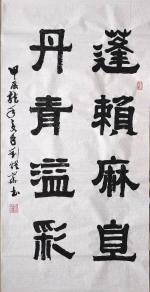 蓬賴麻直
丹青溢彩
甲辰龍年